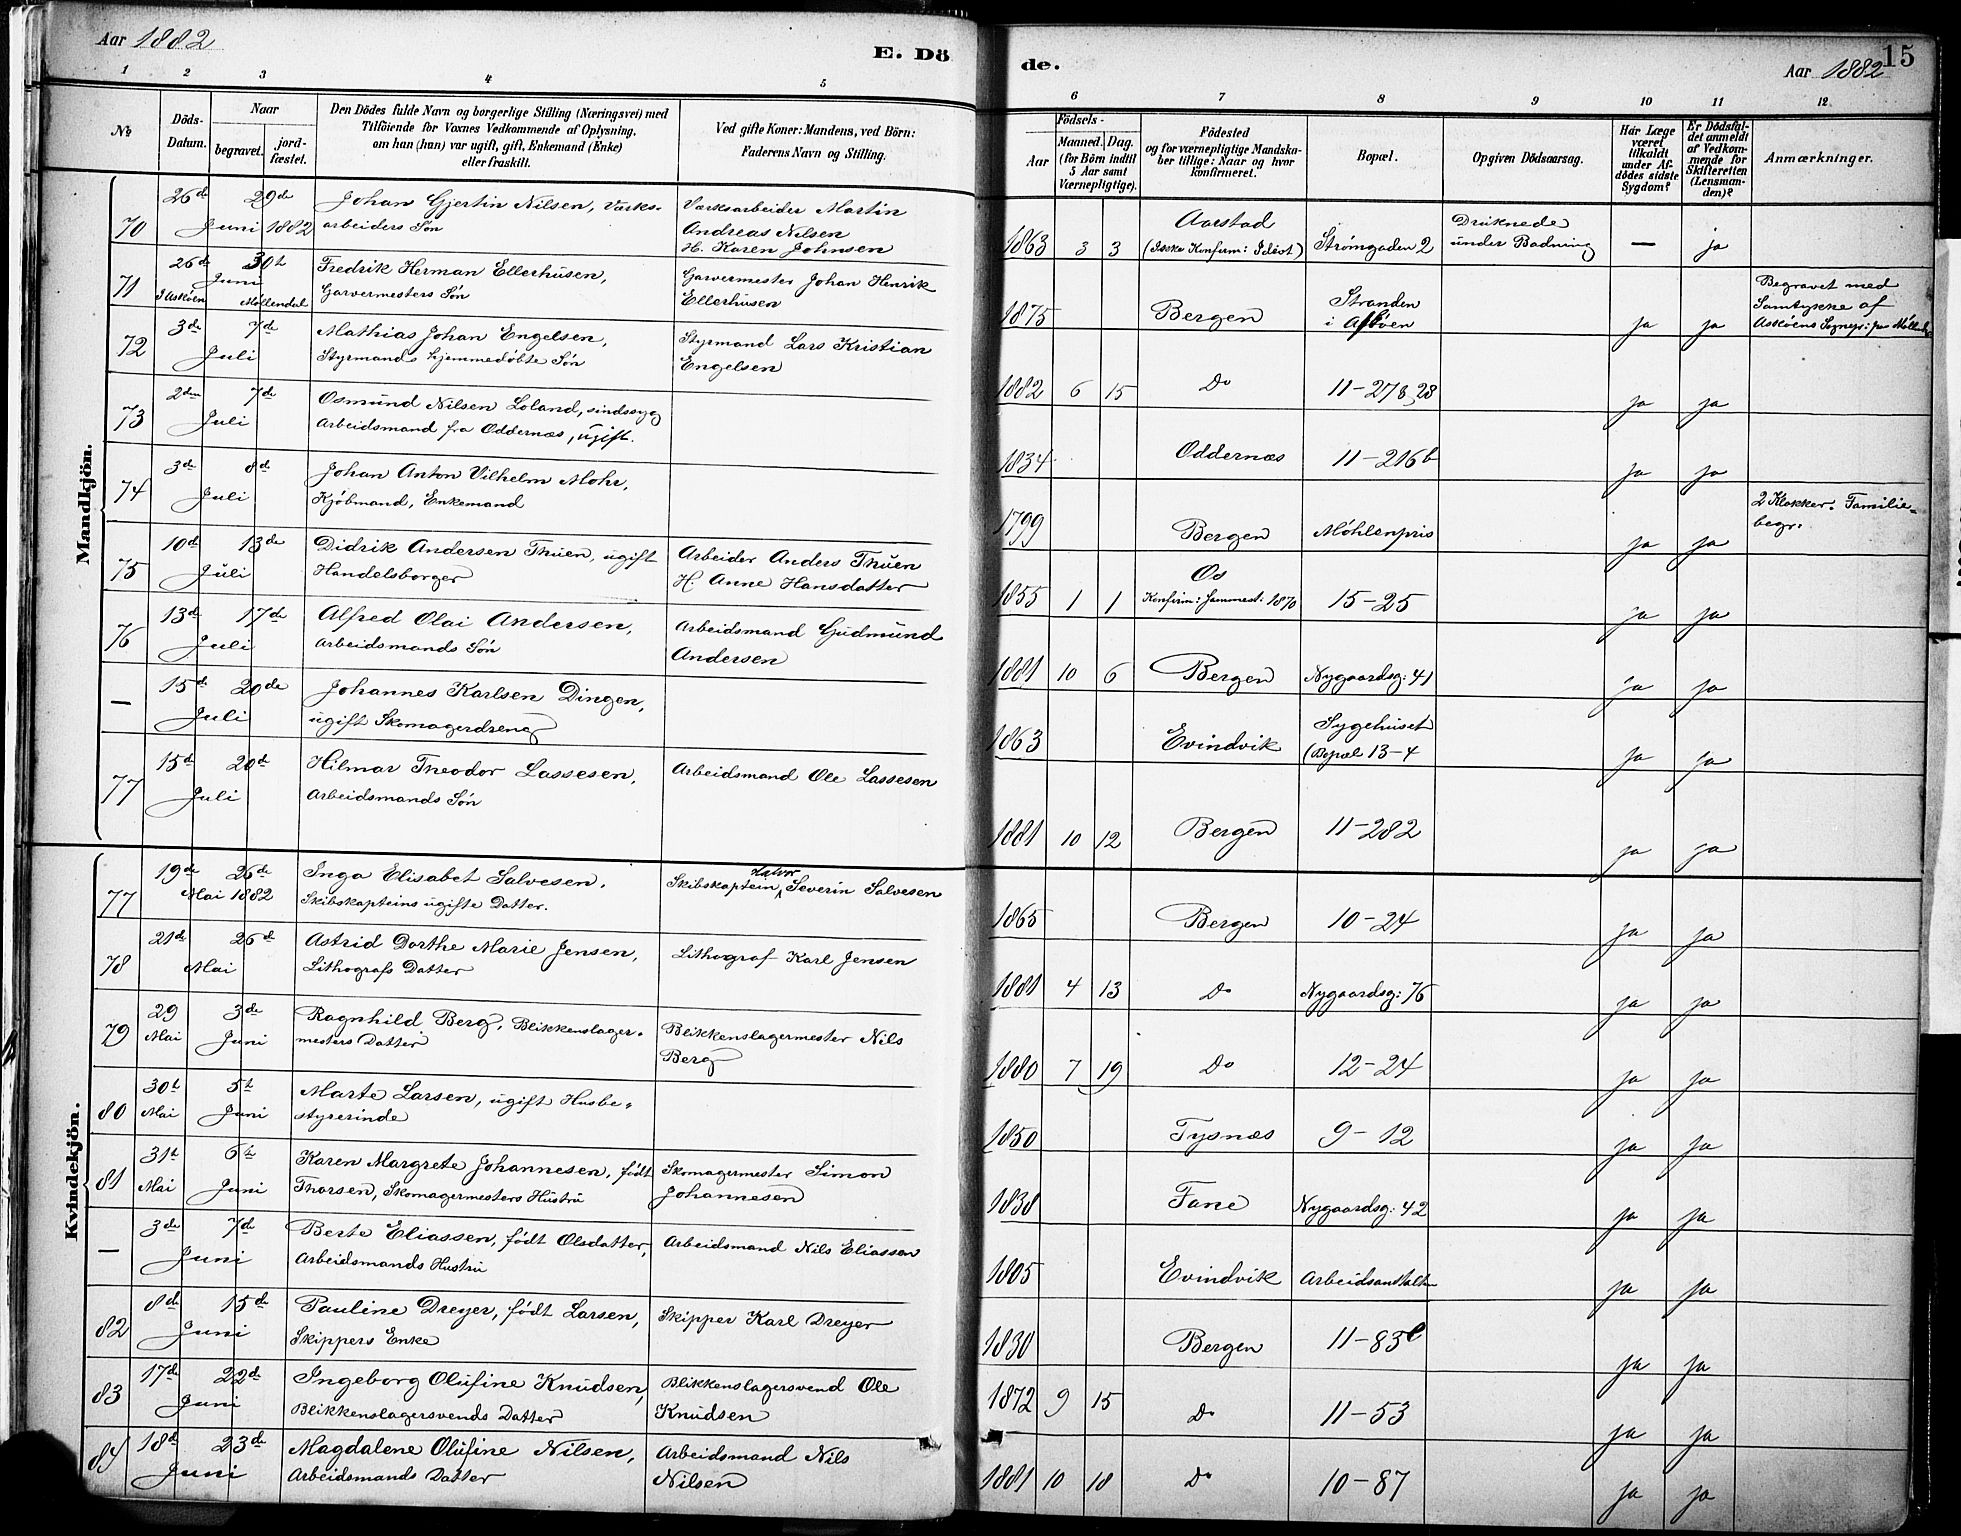 Aar 1882
E. Dö
de.
15
Aar 1882
1 2 3 4 5
6 7 8 9 10 11 12
№
Döds-
Datum.
Naar
begravet.
jord-
fæstet.
Den Dödes fulde Navn og borgerlige Stilling (Næringsvei) med
Tilföiende for Voxnes Vedkommende af Oplysning,
om han (hun) var ugift, gift, Enkemand (Enke)
eller fraskilt.
Ved gifte Koner: Mandens, ved Börn:
Faderens Navn og Stilling.
Födsels-
Aar
Maaned. Dag.
(for Börn indtil
5 Aar samt
Værnepligtige).
Födested
og for værnepligtige Mandska-
ber tillige: Naar og hvor
konfirmeret.
Bopæl.
Opgiven Dödsaarsag.
Har Læge
været
tilkaldt
under Af-
dödes sidste
Sygdom?
Er Dödsfal-
det anmeldt
af Vedkom-
mende for
Skifteretten
(Lensman-
den)?
Anmærkninger.
Mandkjön.
70 26de 29de Johan Gjertin Nilsen, Værks- Værksarbeider Martin
Juni 1882 arbeiders Søn Andreas Nilsen
H. Karen Johnsen
1863 3 3 Aarstad Strømgaden 2 Druknede — ja
(Ikke Konfirm: Idiot) under Badning
71 26de 30te Fredrik Herman Ellerhusen, Garvermester Johan Henrik
Juni
I Askøen Møllendal Garvermesters Søn Ellerhusen
1875 Bergen Stranden ja ja Begravet med
i Askøen Samtykke af
Askøens Sognepr: paa
72 3de 7de Mathias Johan Engelsen, Styrmand Lars Kristian
Juli Styrmands hjemmedøbte Søn Engelsen
1882 6 15 Do 11-27 & 28 ja ja
73 2den 7de Osmund Nilsen Loland, sindssyg
Juli Arbeidsmand fra Oddernæs, ugift.
1834 Oddernæs 11-216b ja ja
74 3de 8de Johan Anton Vilhelm Mohr,
Juli Kjøbmand, Enkemand
1799 Bergen Møhlenpris ja ja 2 Klokker. Familie-
begr.
75 10de 13de Didrik Andersen Thuen, ugift Arbeider Anders Thuen
Juli Handelsborger H. Anne Hansdatter
1855 1 1 Os 15-25 ja ja
Konfirm: sammest: 1870
76 13de 17de Alfred Olai Andersen, Arbeidsmand Gudmund
Juli Arbeidsmands Søn Andersen
1881 10 6 Bergen Nygaardsg: 41 ja ja
— 15de 20de Johannes Karlsen Dingen,
Juli ugift Skomagerdreng
1863 Evindvik Sygehuset ja ja
(Bopæl 13-4
77 15de 20de Hilmar Theodor Lassesen, Arbeidsmand Ole Lassesen
Juli Arbeidsmands Søn
1881 10 12 Bergen 11-282 ja ja
Kvindekjön.
77 19de 26de Inga Elisabet Salvesen, Skibskaptein Halvor Severin Salvesen
Mai 1882 Skibskapteins ugifte Datter.
1865 Bergen 10-24 ja ja
78 21de 26de Astrid Dorthe Marie Jensen, Lithograf Karl Jensen
Mai Lithografs Datter
1881 4 13 Do Nygaardsg: 76 ja ja
79 29 3de Ragnhild Berg, Blikkenslager- Blikkenslagermester Nils
Mai Juni mesters Datter Berg
1880 7 19 Do 12-24 ja ja
80 30te 5te Marte Larsen, ugift Husbe-
Mai Juni styrerinde
1850 Tysnæs 9-12 ja ja
81 31te 6te Karen Margrete Johannesen, født Skomagermester Simon
Mai Juni Thorsen, Skomagermesters Hustru Johannesen
1838 Fane Nygaardsg: 42 ja ja
— 3de 7de Berte Eliassen, født Olsdatter, Arbeidsmand Nils Eliassen
Juni Arbeidsmands Hustru
1805 Evindvik Arbeidsanstalten ja ja
82 8de 15de Pauline Dreyer, født Larsen, Skipper Karl Dreyer
Juni Skippers Enke
1830 Bergen 11-83 ja ja
83 17de 22de Ingeborg Olufine Knudsen, Blikkenslagersvend Ole
Juni Blikkenslagersvends Datter Knudsen
1872 9 15 Do 11-53 ja ja
84 18de 23de Magdalene Olufine Nilsen, Arbeidsmand Nils
Juni Arbeidsmands Datter Nilsen
1881 10 18 Do 10-87 ja ja